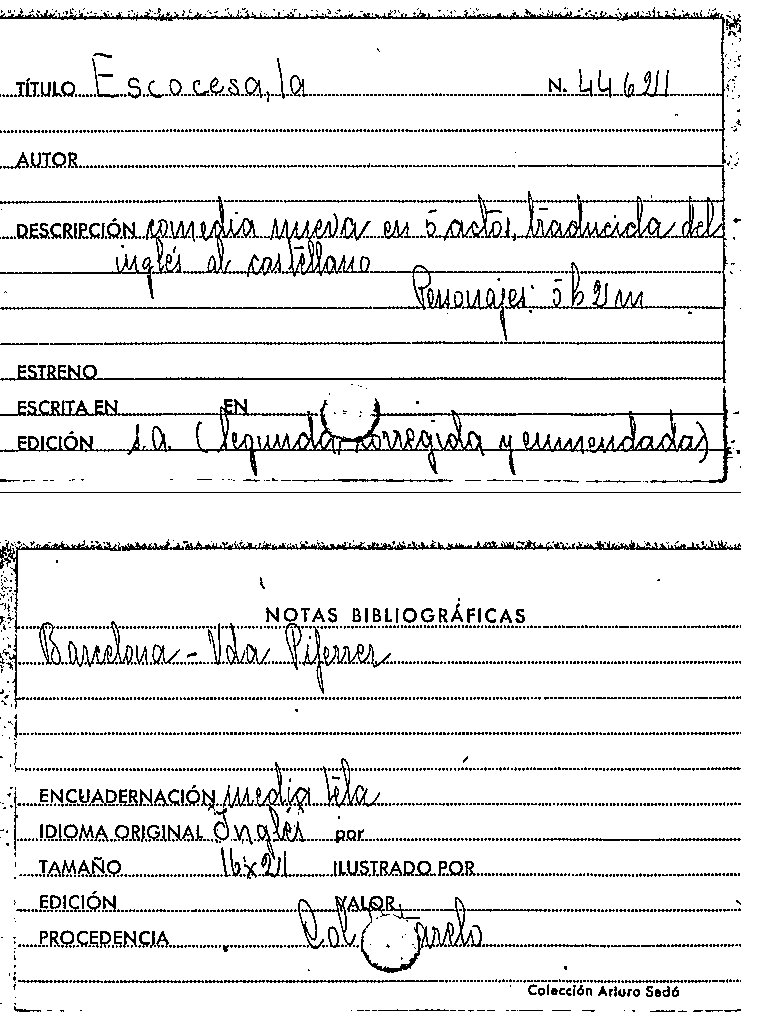 TÍTULO Escocesa, la N. 44621
AUTOR
DESCRIPCIÓN comedia nueva en 5 actos, traducida del
inglés al castellano
Personajes: 5 h 2 m
ESTRENO
ESCRITA EN EN
EDICIÓN s.a. (Segunda, corregida y enmendada)
NOTAS BIBLIOGRÁFICAS
Barcelona - Vda Piferrer
ENCUADERNACIÓN media tela
IDIOMA ORIGINAL Inglés por
TAMAÑO 16x21 ILUSTRADO POR
EDICIÓN VALOR
PROCEDENCIA Col
Colección Arturo Sedó